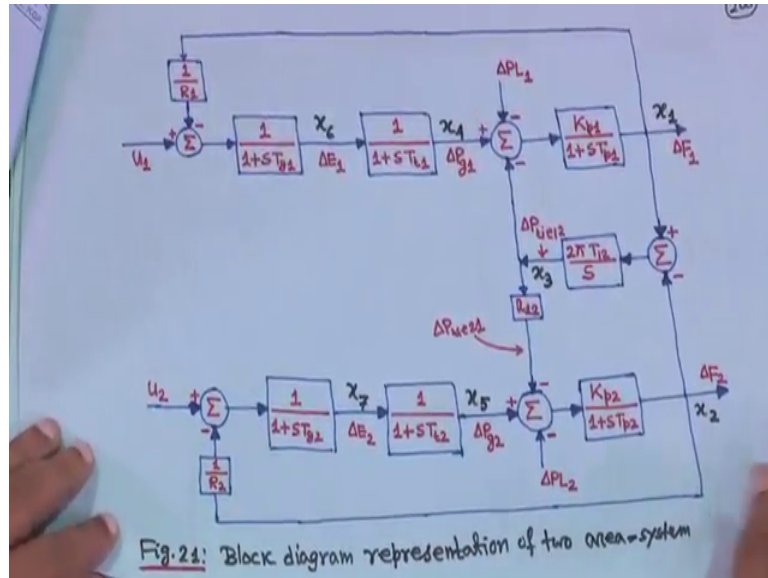 ΔPL₁
1/R₁
U₁ + - Σ 1/(1+STg₁) x₆ ΔE₁ 1/(1+STt₁) x₄ ΔPg₁ + - - Σ Kp₁/(1+STp₁) x₁ ΔF₁
ΔPtie12 x₃ 2πT₁₂/S Σ + -
a₁₂
ΔPtie21
U₂ + - Σ 1/(1+STg₂) x₇ ΔE₂ 1/(1+STt₂) x₅ ΔPg₂ + - - Σ Kp₂/(1+STp₂) ΔF₂ x₂
1/R₂
ΔPL₂
Fig.21: Block diagram representation of two area-system